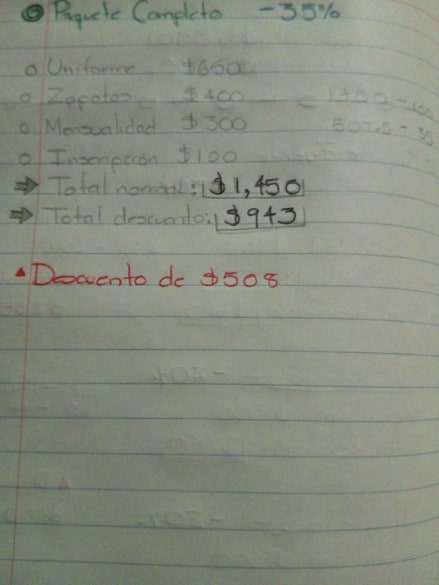 Paquete Completo -35%
Uniforme $650
Zapatos $400
1450 - 100
Mensualidad $300
507.5 - 35
Inscripción $100
⇒ Total normal: $1,450
⇒ Total descuento: $943
Descuento de $508